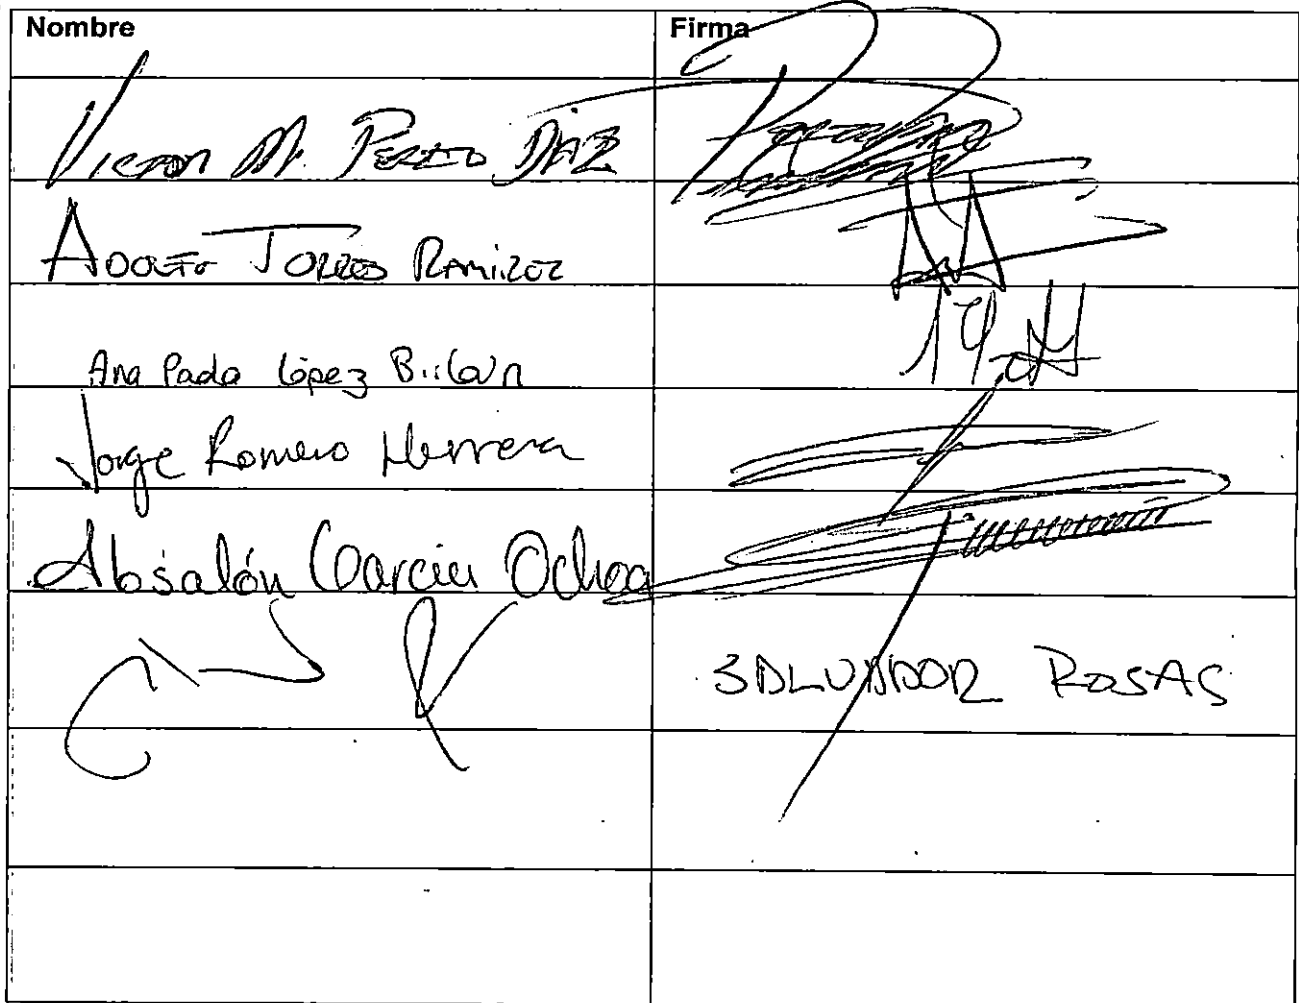 Nombre Firma
Victor M. Perezo Díaz
Adolfo Torres Ramirez
Ana Paola López
Jorge Romero Herrera
Absalón Garcia Ochoa
SALVADOR ROSAS